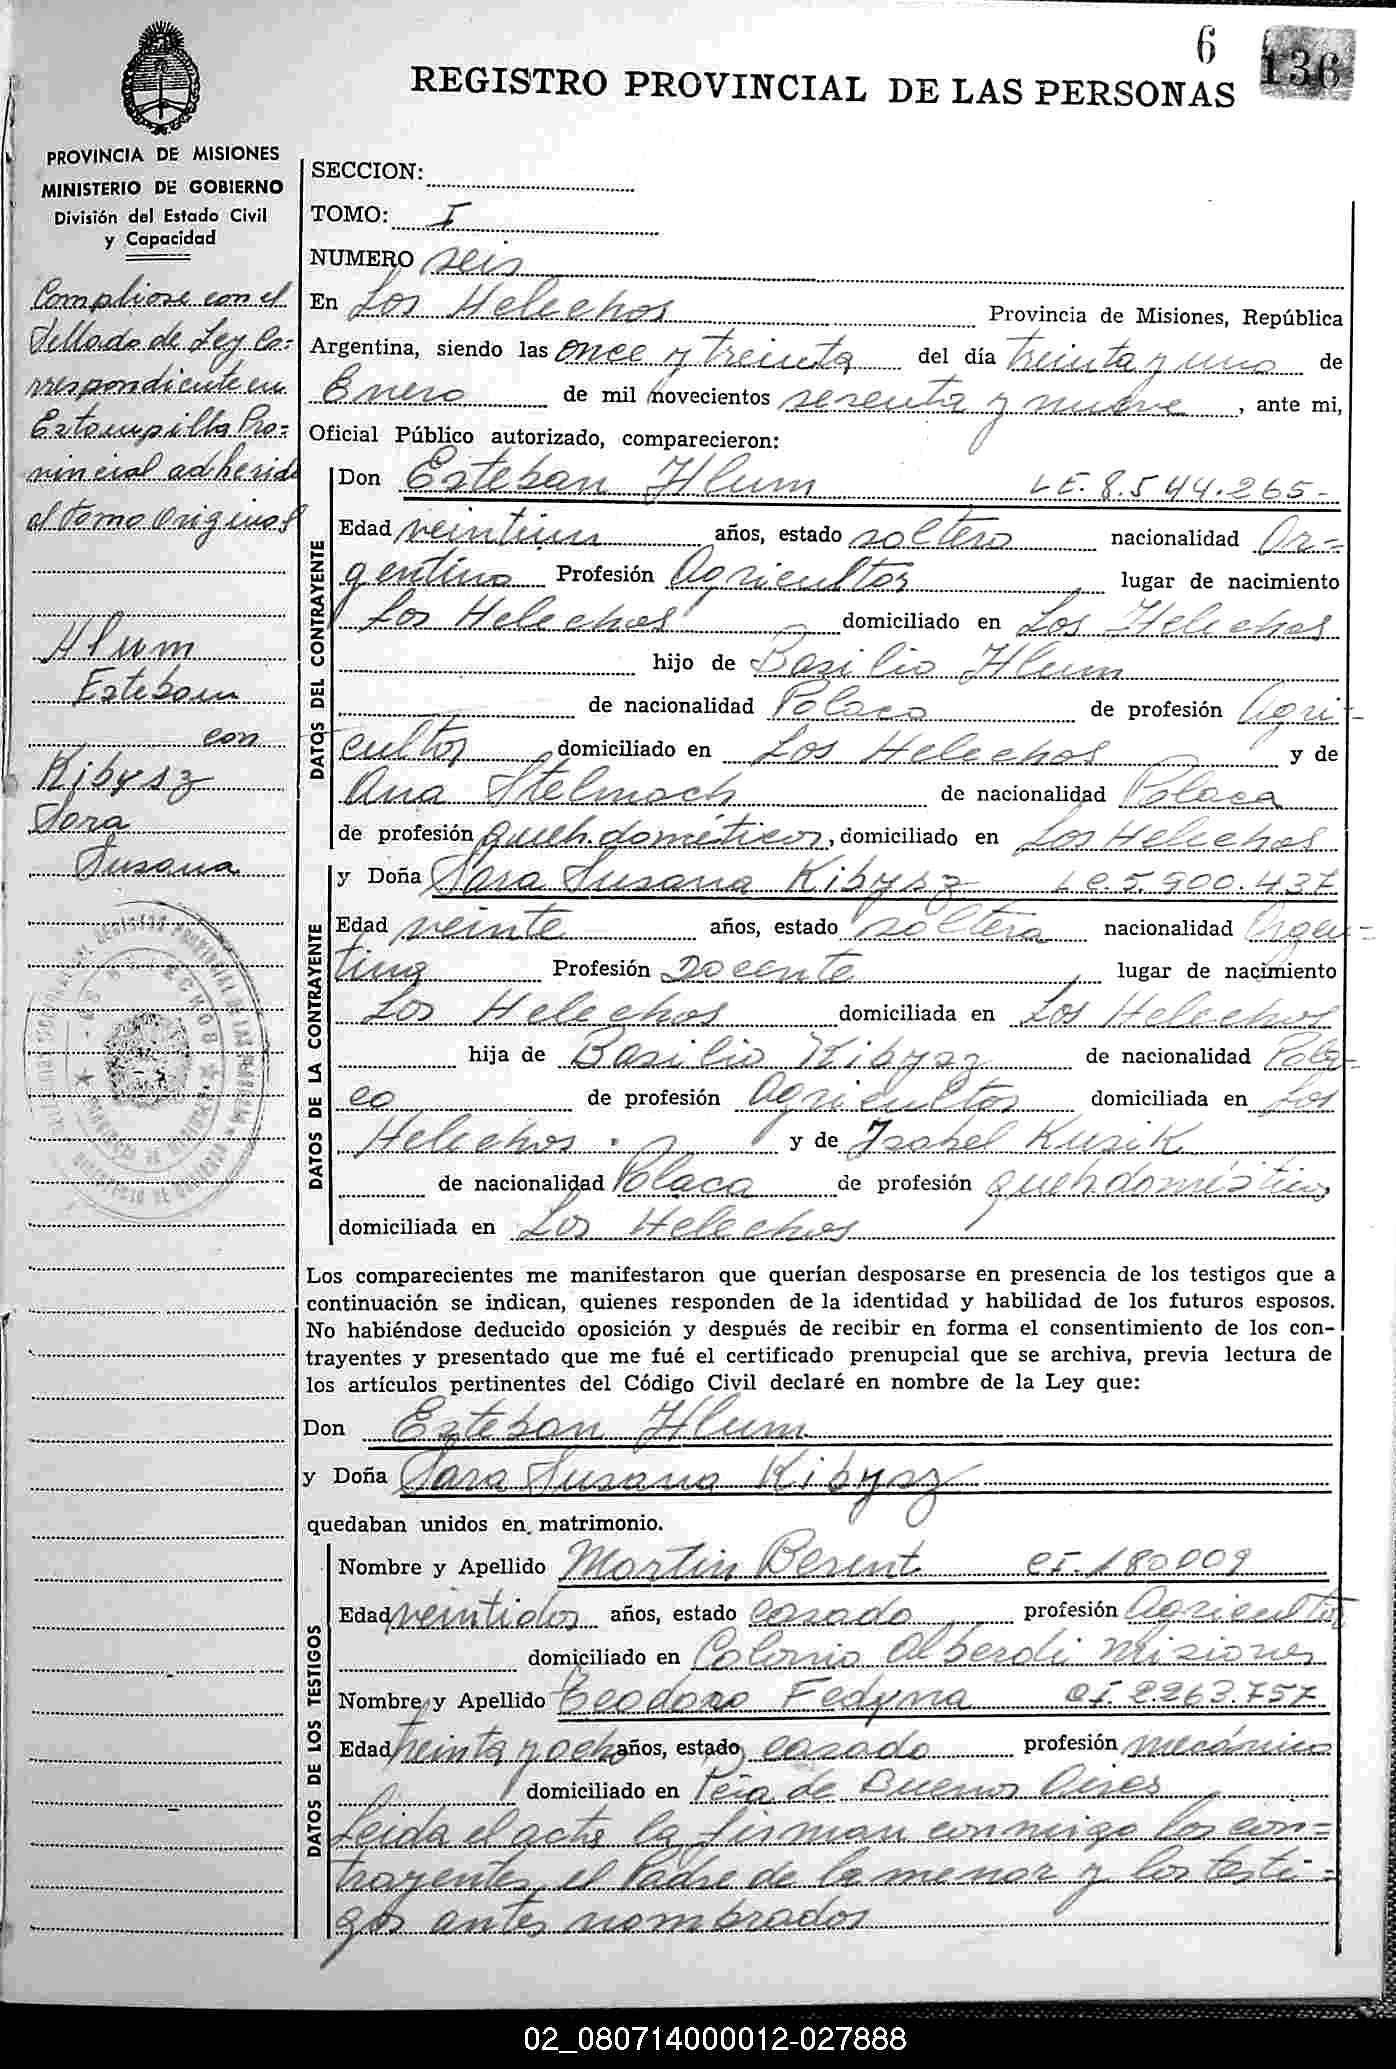 6
136
REGISTRO PROVINCIAL DE LAS PERSONAS
PROVINCIA DE MISIONES
MINISTERIO DE GOBIERNO
División del Estado Civil
y Capacidad
Compliose con el
Sellado de Ley Co-
rrespondiente en
Estampilla Pro-
vincial adherida
al tomo Original
Hlum
Esteban
con
Kibysz
Sara
Susana
SECCION:
TOMO: I
NUMERO seis
En Los Helechos Provincia de Misiones, República
Argentina, siendo las once y treinta del día treinta y uno de
Enero de mil novecientos setenta y nueve, ante mi,
Oficial Público autorizado, comparecieron:
DATOS DEL CONTRAYENTE
Don Esteban Hlum LE. 8.544.265-
Edad veintiun años, estado soltero nacionalidad Ar=
gentino Profesión Agricultor lugar de nacimiento
Los Helechos domiciliado en Los Helechos
hijo de Basilio Hlum
de nacionalidad Polaco de profesión Agri-
cultor domiciliado en Los Helechos y de
Ana Stelmach de nacionalidad Polaca
de profesión queh. domésticos, domiciliado en Los Helechos
DATOS DE LA CONTRAYENTE
y Doña Sara Susana Kibysz LC. 5.900.437
Edad veinte años, estado soltera nacionalidad Argen=
tina Profesión Docente lugar de nacimiento
Los Helechos domiciliada en Los Helechos
hija de Basilio Kibysz de nacionalidad Pola-
co de profesión Agricultor domiciliado en Los
Helechos. y de Isabel Kusik
de nacionalidad Polaca de profesión queh. domésticos
domiciliada en Los Helechos
Los comparecientes me manifestaron que querían desposarse en presencia de los testigos que a
continuación se indican, quienes responden de la identidad y habilidad de los futuros esposos.
No habiéndose deducido oposición y después de recibir en forma el consentimiento de los con-
trayentes y presentado que me fué el certificado prenupcial que se archiva, previa lectura de
los artículos pertinentes del Código Civil declaré en nombre de la Ley que:
Don Esteban Hlum
y Doña Sara Susana Kibysz
quedaban unidos en matrimonio.
DATOS DE LOS TESTIGOS
Nombre y Apellido Martin Berent CI. 180009
Edad veintidos años, estado casado profesión Agricultor
domiciliado en Colonia Alberdi Misiones
Nombre y Apellido Teodoro Fedyna CI. 2.263.757
Edad treinta y ocho años, estado casado profesión mecánico
domiciliado en Pcia de Buenos Aires
Leida el acta la firman conmigo los con=
trayentes, el Padre de la menor y los testi-
gos antes nombrados
02_080714000012-027888